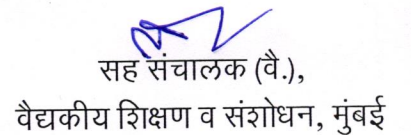 सह संचालक (वै.),
वैद्यकीय शिक्षण व संशोधन, मुंबई